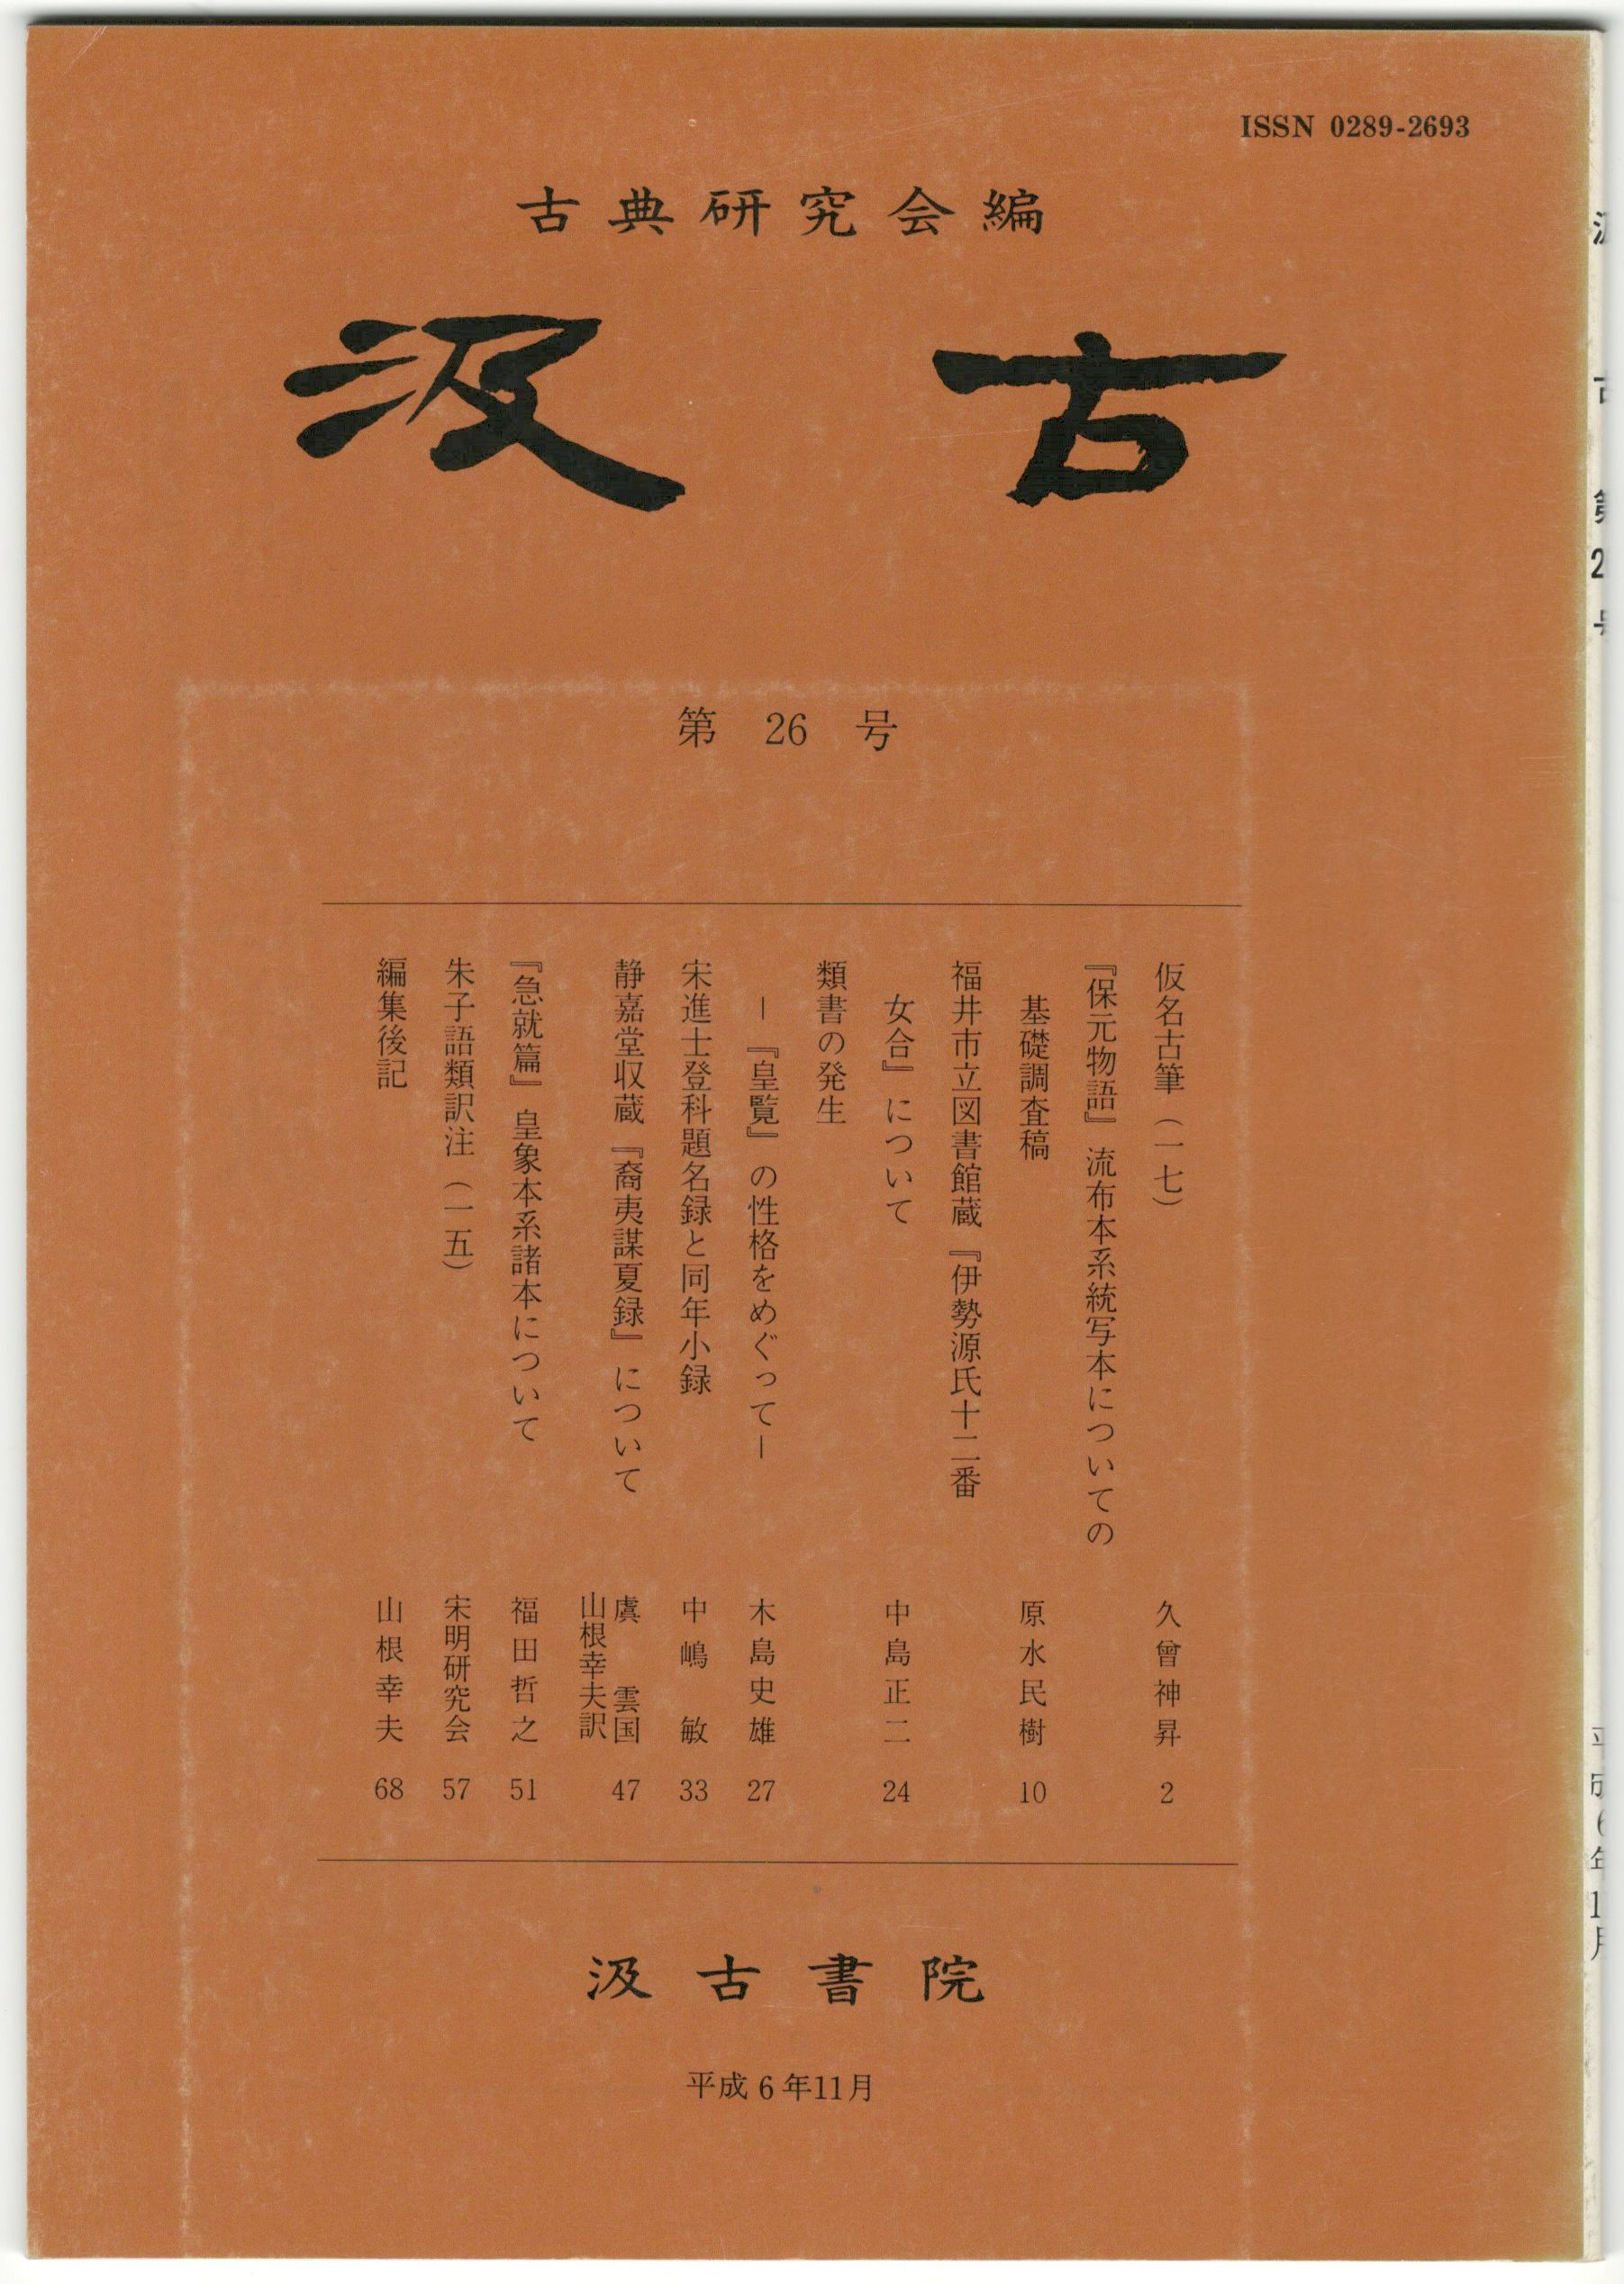 ISSN 0289-2693
古典研究会編
汲古
第 26 号
仮名古筆(一七) 久曾神昇 2
『保元物語』流布本系統写本についての
基礎調査稿 原水民樹 10
福井市立図書館蔵『伊勢源氏十二番
女合』について 中島正二 24
類書の発生
―『皇覧』の性格をめぐって― 木島史雄 27
宋進士登科題名録と同年小録 中嶋敏 33
静嘉堂収蔵『裔夷謀夏録』について 虞雲国 47
山根幸夫訳
『急就篇』皇象本系諸本について 福田哲之 51
朱子語類訳注(一五) 宋明研究会 57
編集後記 山根幸夫 68
汲古書院
平成6年11月